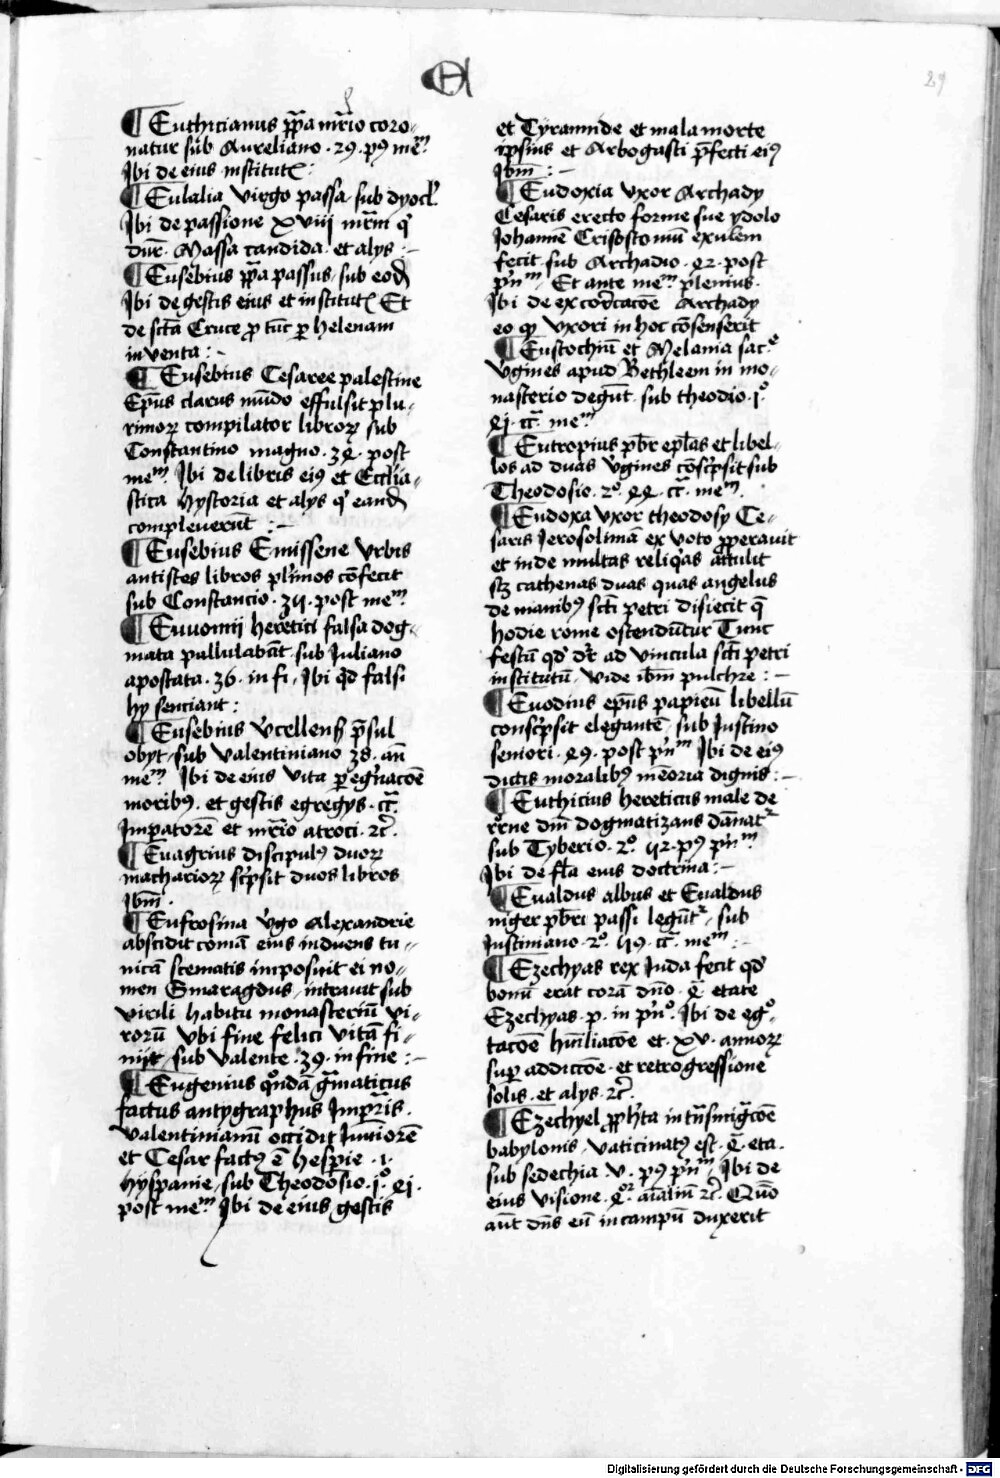 29
¶ Euthicianus pp̄a mr̄io coro-
natur sub Aureliano . 29 . p9 mem̄
Ibi de eius institut̄ :
¶ Eulalia virgo passa sub dyocl̄
Ibi de passione xviij mr̄m q̄
dūr Massa candida et alys .
¶ Eusebius pp̄a passus sub eod̄
Ibi de gestis eius et institut̄ Et
de sct̄a Cruce p̄ tūc p̄ helenam
inventa : -
¶ Eusebius Cesaree palestine
Ep̄us clarus mūdo effulsit plu-
rimoꝝ compilator libroꝝ sub
Constantino magno . 34 . post
mem̄ Ibi de libris ei9 et Eccl̄ia-
stica hystoria et alys q̄ eand̄
compleverūt : -
¶ Eusebius Emissene Urbis
antistes libros pl'imos cōfecit
sub Constancio . 35 . post mem̄
¶ Euuomii heretici falsa dog-
mata pallulabāt sub Iuliano
apostata . 36 . in fi . Ibi qd̄ falsi
hy senciant :
¶ Eusebius Vcellens̄ p̄sul
obyt sub Valentiniano 38 . an̄
mem̄ Ibi de eius vita peḡnacōē
morib9 . et gestis egregys . ct̄ra
Imp̄atorē et mr̄io atroci . ⁊c̄ .
¶ Euagrius discipul9 duoꝝ
macharioꝝ sc̄psit duos libros
Ibm̄ .
¶ Eufrosina v̄go Alexandrie
abscidit comā eius induens tu-
nicā scematis imposuit ei no-
men Smaragdus intravit sub
virili habitu monasteriū vi-
rorū Ubi fine felici vitā fi-
nijt sub Valente . 39 . in fine : -
¶ Eugenius qōdā ḡmaticus
factus antygraphus Imp̄ris .
Valentinianū occidit Iuniorē
et Cesar fact9 ē hesp̄ie . i .
hyspanie sub Theodosio . j° . 41 .
post mem̄ Ibi de eius gestis
et Tyrannide et mala morte
ipsius et Arbogasti p̄fecti ei9
Ibm̄ : -
¶ Eudoxia uxor Archady
Cesaris erecto forme sue ydolo
Iohannē Crisostomū exulem
fecit sub Archadio . 42 . post
p̄nm̄ Et ante mem̄ plenius .
Ibi de excōicacōe Archady
eo q̄ uxori in hoc cōsenserit
¶ Eustochiū et Melania sac̄e
v̄gines apud Bethleem in mo-
nasterio degūt sub theodio . j°
41 . ct̄ra mem̄
¶ Eutropius pb̄r epl̄as et libel-
los ad duas v̄gines cōsc̄psit sub
Theodosio . 2° . 44 . ct̄ra mem̄ .
¶ Eudoxa uxor theodosy Ce-
saris Ierosolimā ex voto pp̄eravit
et inde multas reliq̄as attulit
sꝫ cathenas duas quas angelus
de manib9 sct̄i petri disiecit q̄
hodie rome ostendūtur Tunc
festū qd̄ dr̄ ad vincula sct̄i petri
institutū . vide ibm̄ pulchre : -
¶ Evodius ep̄us papieū libellū
consc̄psit elegantē sub Iustino
seniori . 49 . post p̄nm̄ Ibi de ei9
dictis moralib9 mēoria dignis : -
¶ Euthicius hereticus male de
dm̄ dogmatizans dānatr
sub Tyberio . 2° . 52 . p9 p̄nm̄
Ibi de fl̄a eius doctrina : -
¶ Evaldus albus et Evaldus
niger pb̄ri passi legūtr sub
Iustiniano . 2° . 59 . ct̄ra mem̄ : -
¶ Ezechyas rex Iuda fecit qd̄
bonū erat corā dn̄o . 4ā etate
Ezechyas . p . in p̄n° . Ibi de eg°-
tacōē hūiliacōē et . xv . annoꝝ
sup̄ addiccōē et retrogressione
solis . et alys . ⁊c̄ .
¶ Ezechyel pp̄h'ta in tn̄smig̅cōe
babylonis vaticinat9 est . 4ā eta .
sub sedechia . v . p9 p̄nm̄ Ibi de
eius visione . 4or aīaliū ⁊c̄ . Quō
aūt dn̄s eū in campū duxerit
Digitalisierung gefördert durch die Deutsche Forschungsgemeinschaft - DFG